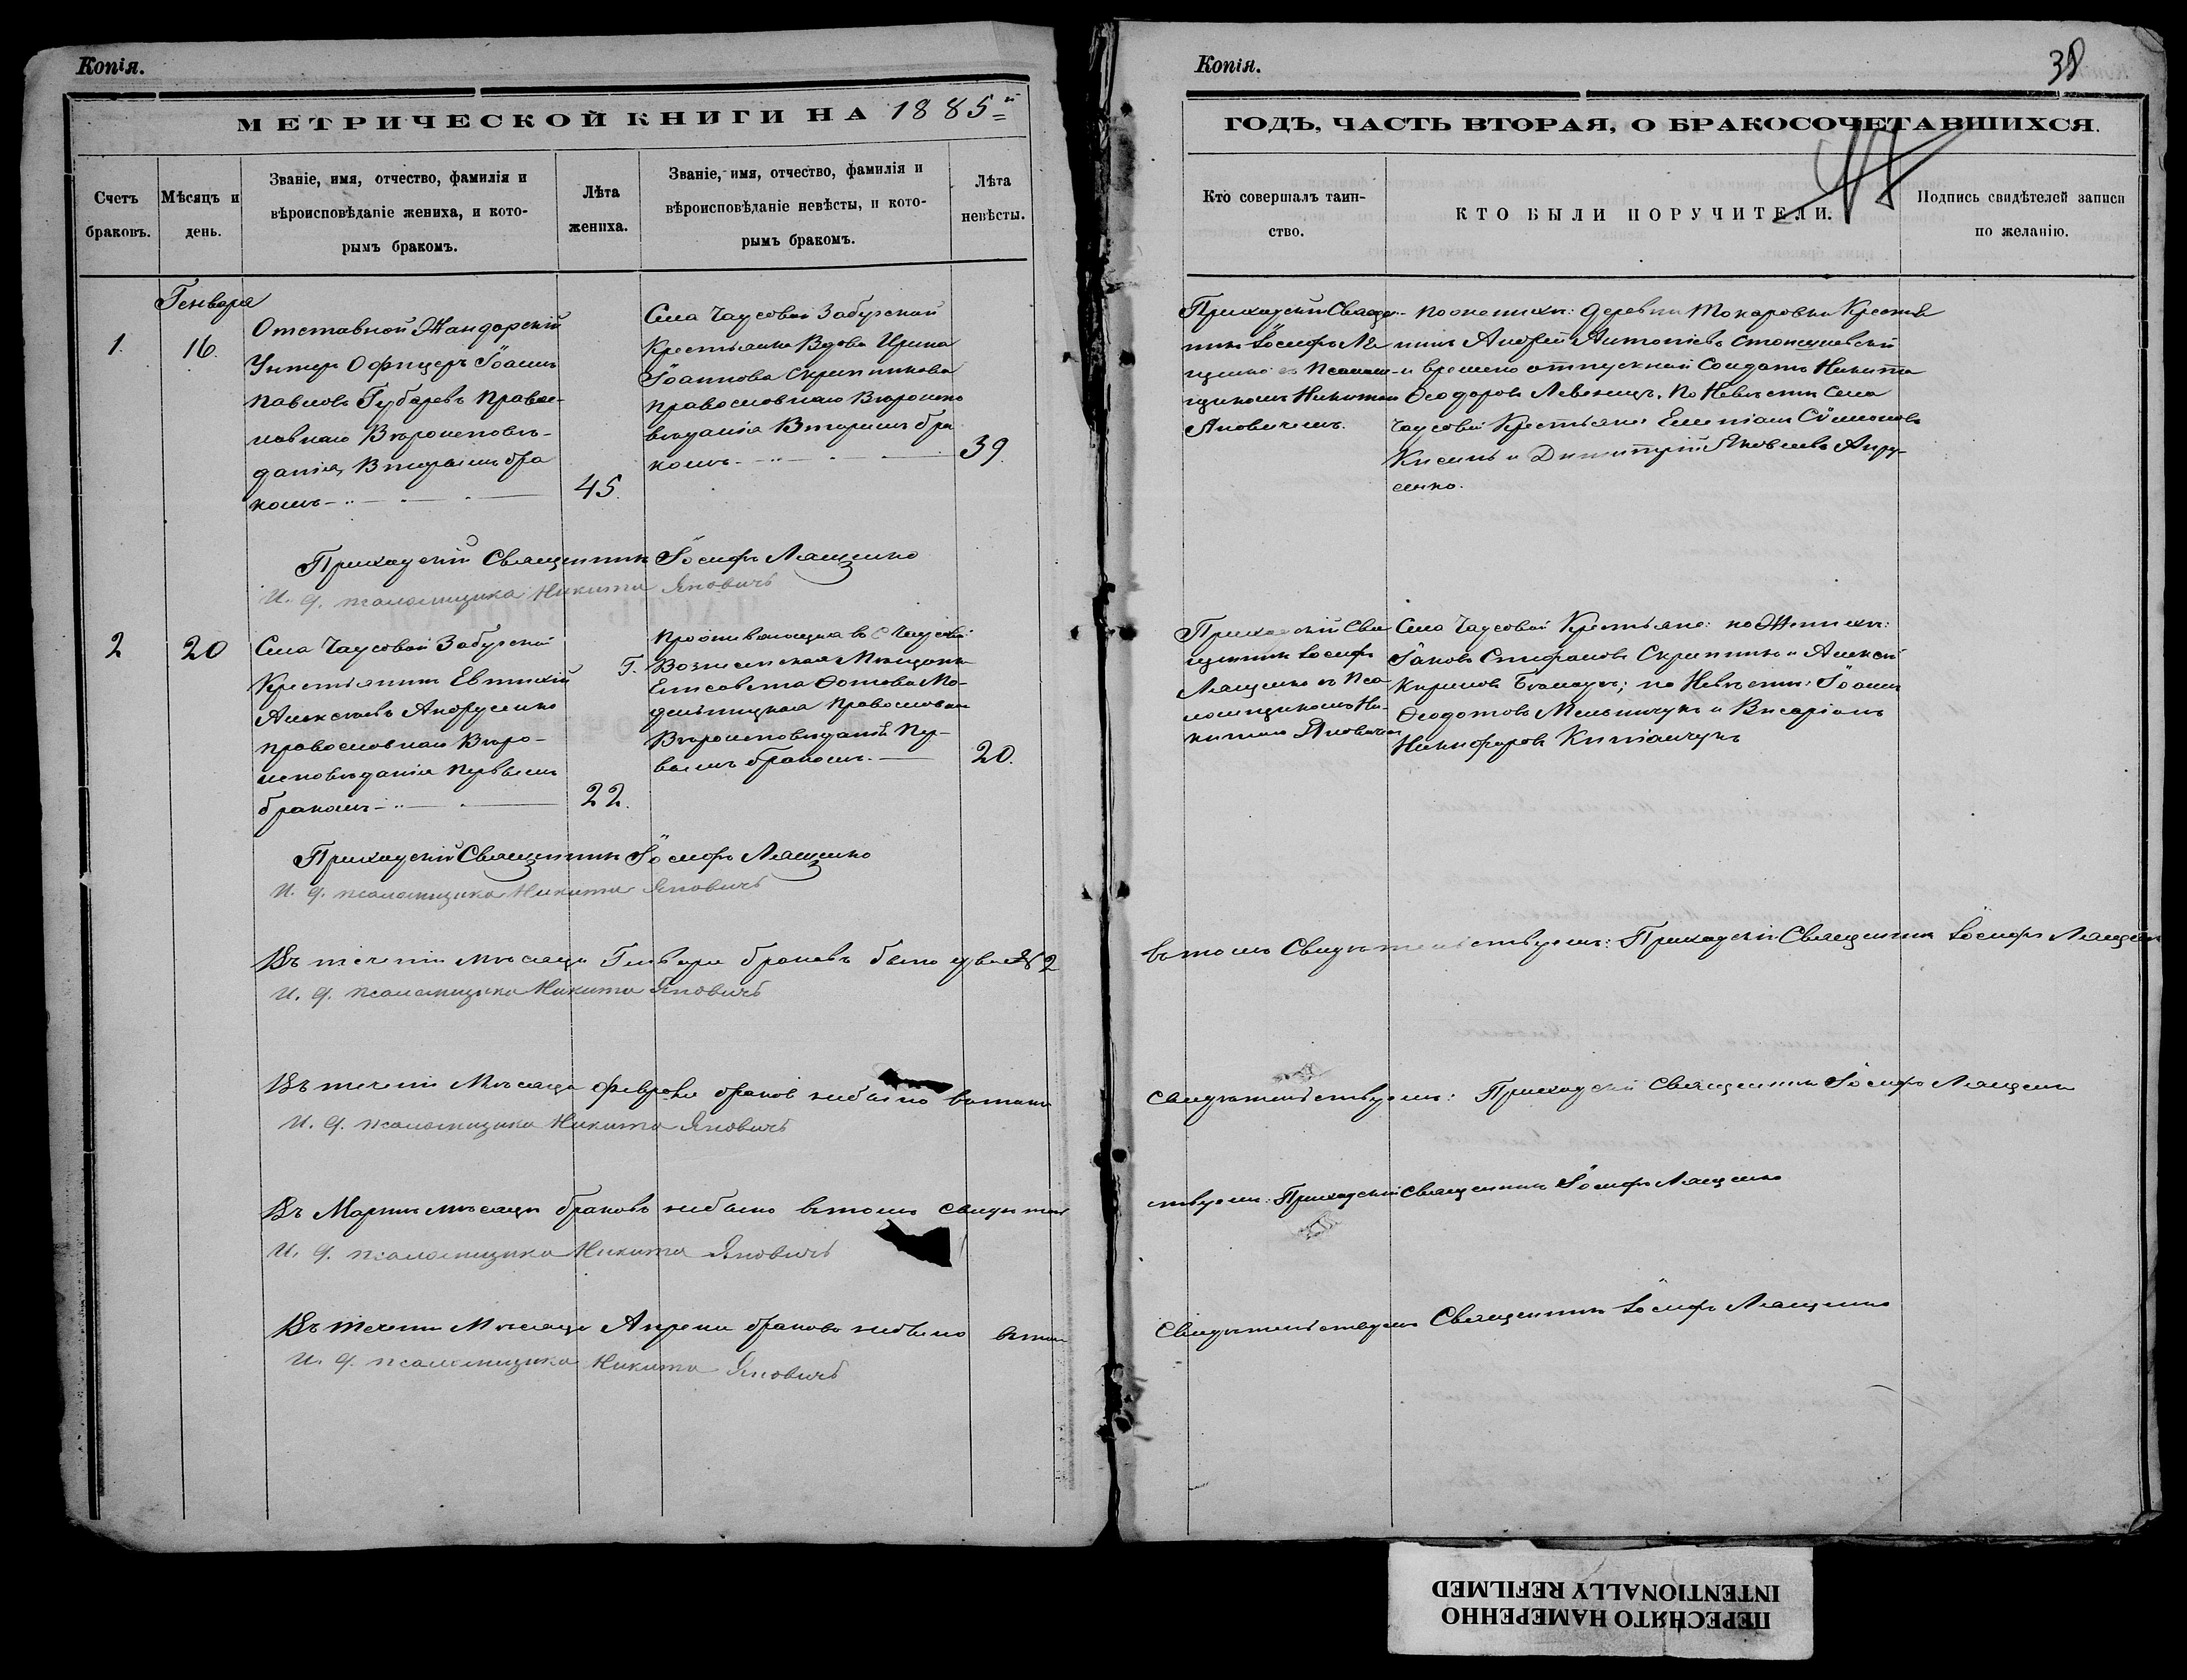 Копія.
МЕТРИЧЕСКОЙ КНИГИ НА 1885й
Счетъ браковъ.
Мѣсяцъ и день.
Званіе, имя, отчество, фамилія и вѣроисповѣданіе жениха, и которымъ бракомъ.
Лѣта жениха.
Званіе, имя, отчество, фамилія и вѣроисповѣданіе невѣсты, и которымъ бракомъ.
Лѣта невѣсты.
Генваря
1.
16.
Отставной Жандарскій
Унтеръ Офицеръ Іоаннъ
Павловъ Губаревъ Правос-
лавнаго Вѣроисповѣ-
данія, Вторымъ бра
комъ
45.
Села Чаусовой Забугской
Крестьянка Вдова Ирина
Іоаннова Скрипникова
православнаго Вѣроиспо
вѣданія Вторымъ бра
комъ
39.
Приходскій Священникъ Іосифъ Лященко
И. д. псаломщика Никита Яновичъ
2
20
Села Чаусовой Забугской
Крестьянинъ Евтихій
Алексѣевъ Андрусенко
православнаго Вѣро-
исповѣданія Первымъ
бракомъ
22.
Проживающая въ С Чаусовой
Г. Вознесенска Мѣщанка
Елисавета Фотова Мо-
дельницкая Православнаго
Вѣроисповѣданія Пер-
вымъ бракомъ.
20.
Приходскій Священникъ Іосифъ Лященко
И. д. псаломщика Никита Яновичъ
Въ теченіи мѣсяца Генваря браковъ было два № 2
И. д. псаломщика Никита Яновичъ
Въ теченіи Мѣсяца Февраля браков небыло вътомъ
И. д. псаломщика Никита Яновичъ
Въ Мартѣ мѣсяцѣ браковъ небыло вътомъ свидѣтель
И. д. псаломщика Никита Яновичъ
Въ теченіи Мѣсяца Апреля браковъ небыло втом
И. д. псаломщика Никита Яновичъ
Копія.
38
ГОДЪ, ЧАСТЬ ВТОРАЯ, О БРАКОСОЧЕТАВШИХСЯ.
Кто совершалъ таинство.
КТО БЫЛИ ПОРУЧИТЕЛИ.
Подпись свидѣтелей записи по желанію.
Приходскій Священ-
никъ Іосифъ Ля
щенко съ Псалом-
щикомъ Никитою
Яновичемъ.
по женихѣ: деревни Токаровки Крестья
нинъ Андрей Антоніевъ
и времено отпускной Солдатъ Никита
Ѳеодоровъ Левенецъ. По Невѣстѣ Села
Чаусовой Крестьяне: Симеоновъ
Кисель и Димитрій Яковлевъ Андру-
сенко.
Приходскій Свя
щенникъ Іосифъ
Лященко съ Пса
ломщикомъ Ни-
китою Яновичем
Села Чаусовой Крестьяне: по Женихѣ:
Іаковъ Стефановъ Скрипникъ и Алексѣй
Кириловъ; по Невѣстѣ: Іоаннъ
Ѳеодотовъ Мельничукъ и Висаріонъ
Никифоровъ
вътомъ Свидѣтельствуемъ: Приходскій Священникъ Іосифъ Лященко
свидѣтельствуемъ: Приходскій Священникъ Іосифъ Лященко
ствуемъ: Приходскій священникъ Іосифъ Лященко
Свидѣтельствуемъ Священникъ Іосифъ Лященко
ПЕРЕСНЯТО НАМЕРЕННО
INTENTIONALLY REFILMED